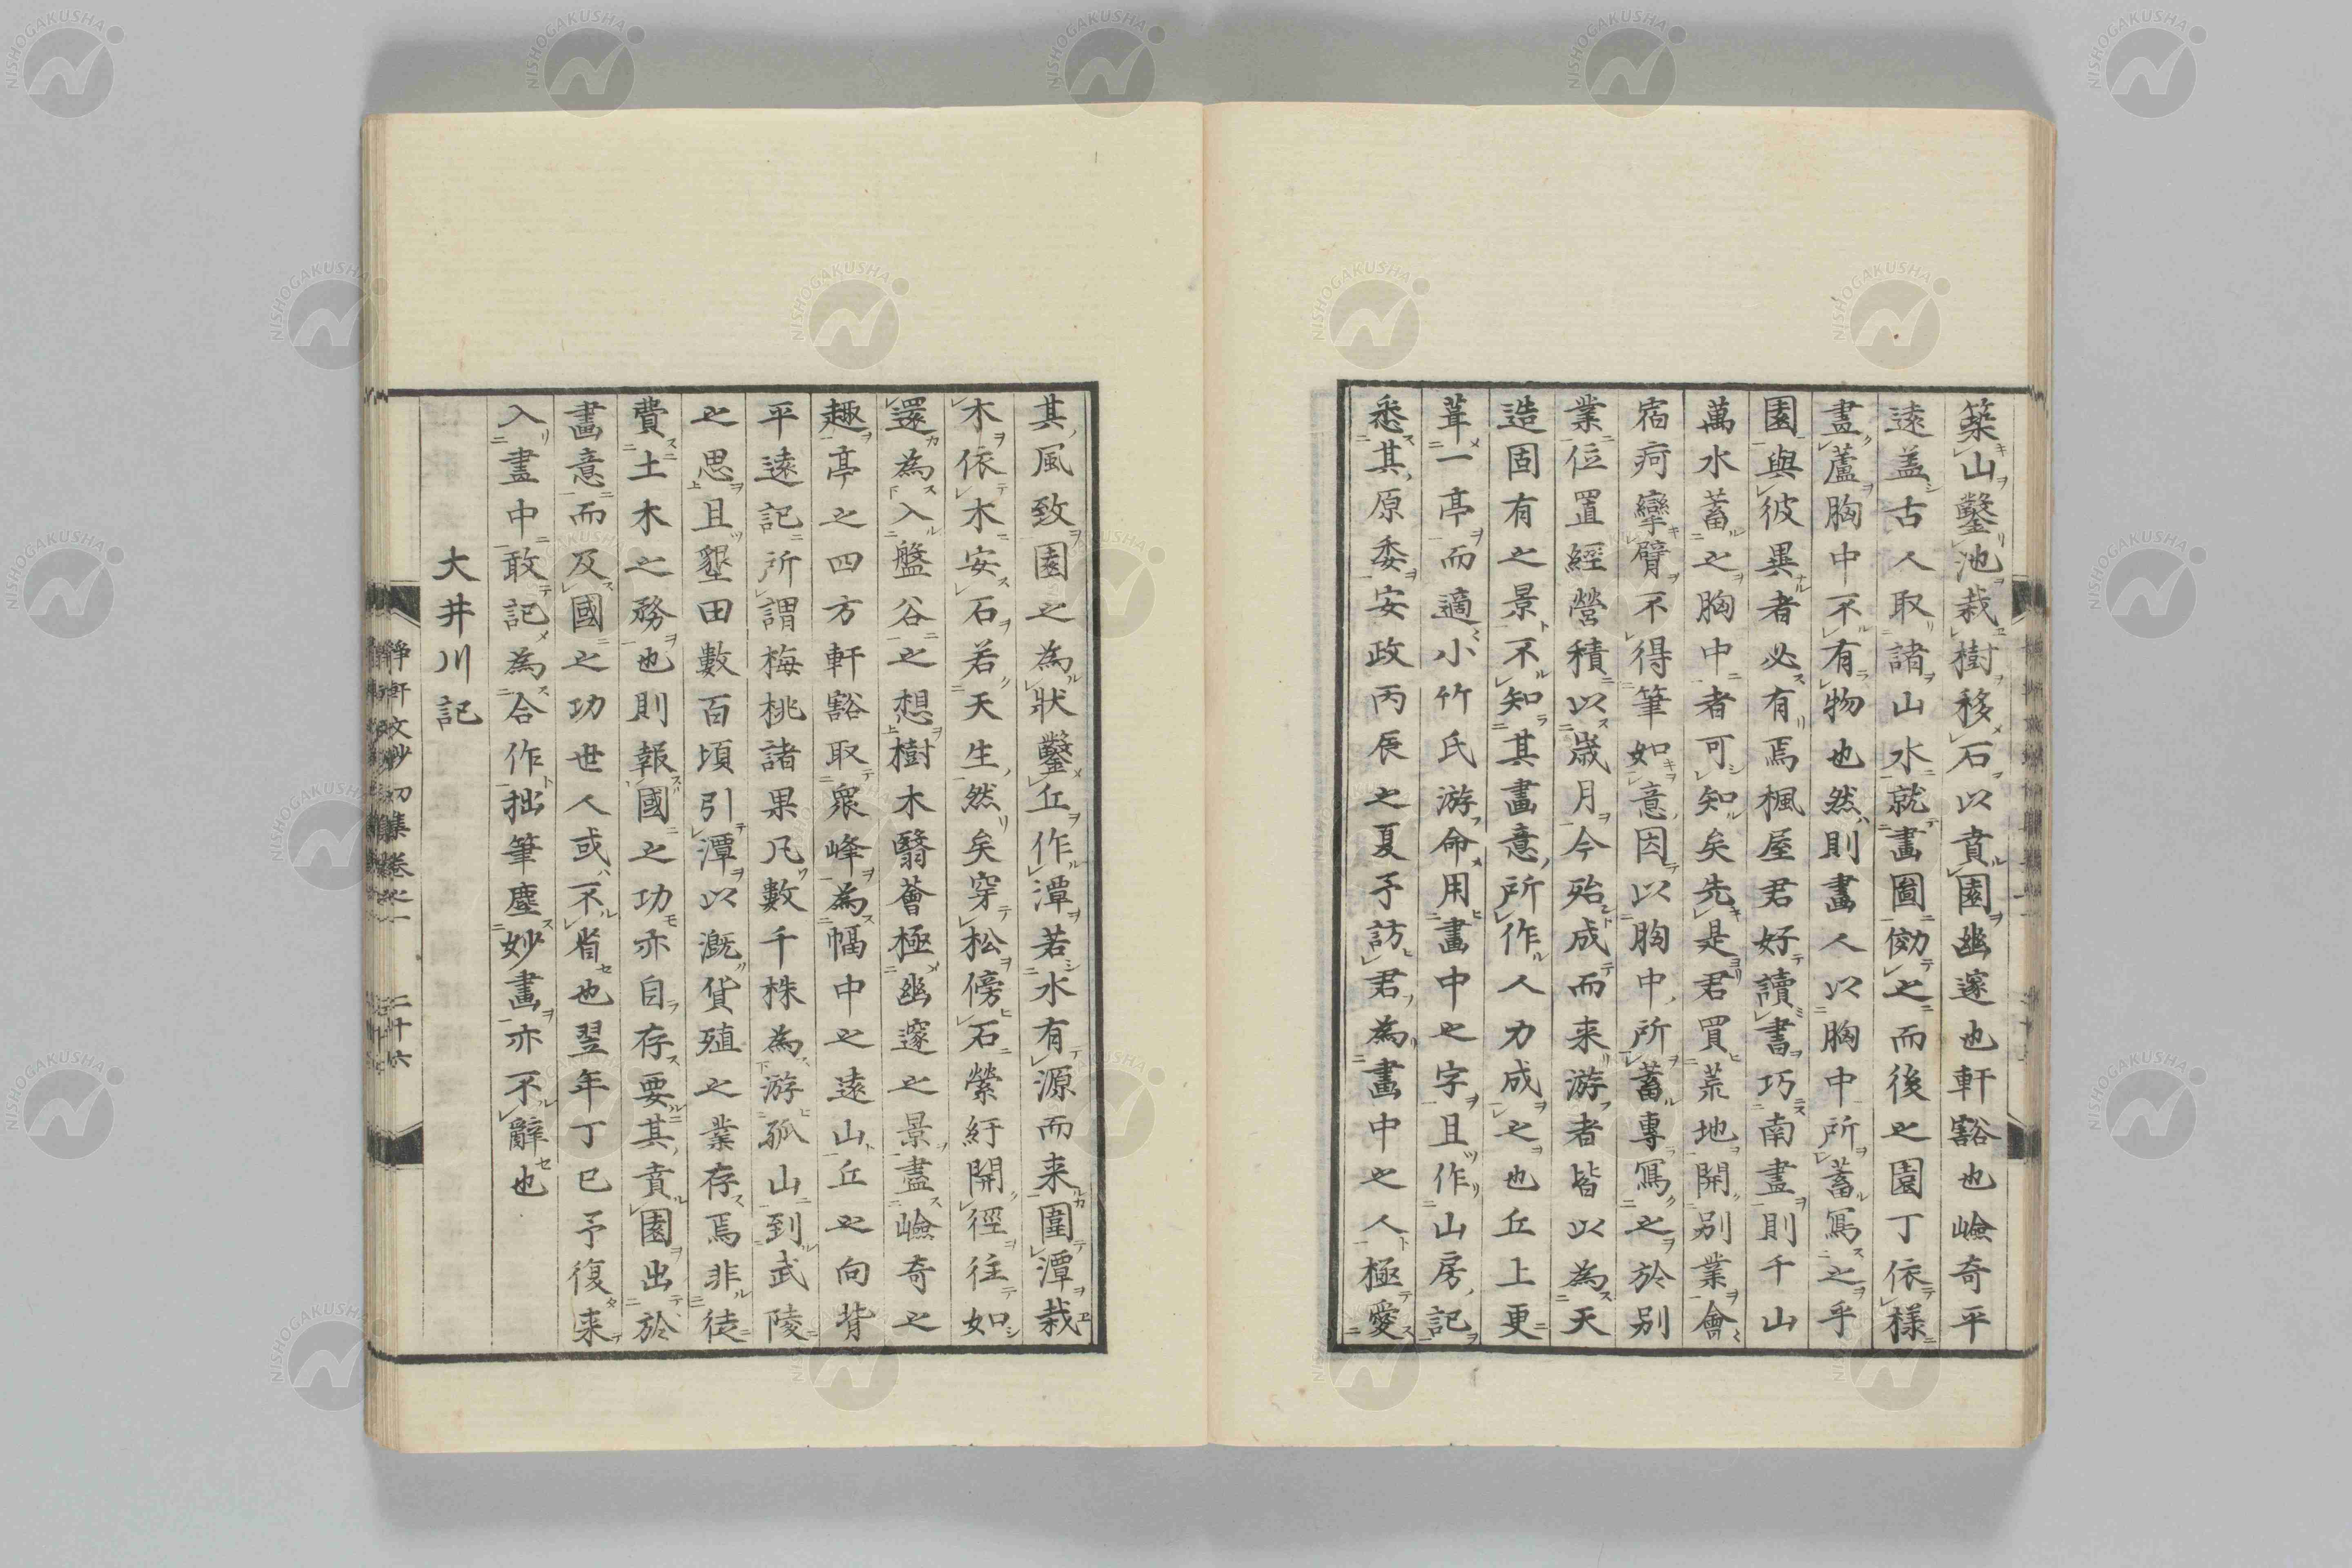 築山鑿池栽樹移石以賁園幽邃也軒豁也嶮奇平
遠盖古人取諸山水就畫圖傚之而後之園丁依樣
畫蘆胸中不有物也然則畫人以胸中所蓄寫之乎
園與彼異者必有焉楓屋君好讀書巧南畫則千山
萬水蓄之胸中者可知矣先是君買荒地開別業會
宿疴攣臂不得筆如意因以胸中所蓄專寫之於別
業位置經營積以歳月今殆成而来游者皆以為天
造固有之景不知其畫意所作人力成之也丘上更
葺一亭而適小竹氏游命用畫中之字且作山房記
悉其原委安政丙辰之夏予訪君為畫中之人極愛
其風致園之為狀鑿丘作潭若水有源而来圍潭栽
木依木安石若天生然矣穿松傍石縈紆開徑往如
還為入盤谷之想樹木翳薈極幽邃之景盡嶮奇之
趣亭之四方軒豁取衆峰為幅中之遠山丘之向背
平遠記所謂梅桃諸果凡數千株為游孤山到武陵
之思且墾田數百頃引潭以漑貨殖之業存焉非徒
費土木之務也則報國之功亦自存要其賁園出於
畫意而及國之功世人或不省也翌年丁巳予復来
入畫中敢記為合作拙筆塵妙畫亦不辭也
大井川記
静軒文鈔初集卷之一
二十六
NISHOGAKUSHA